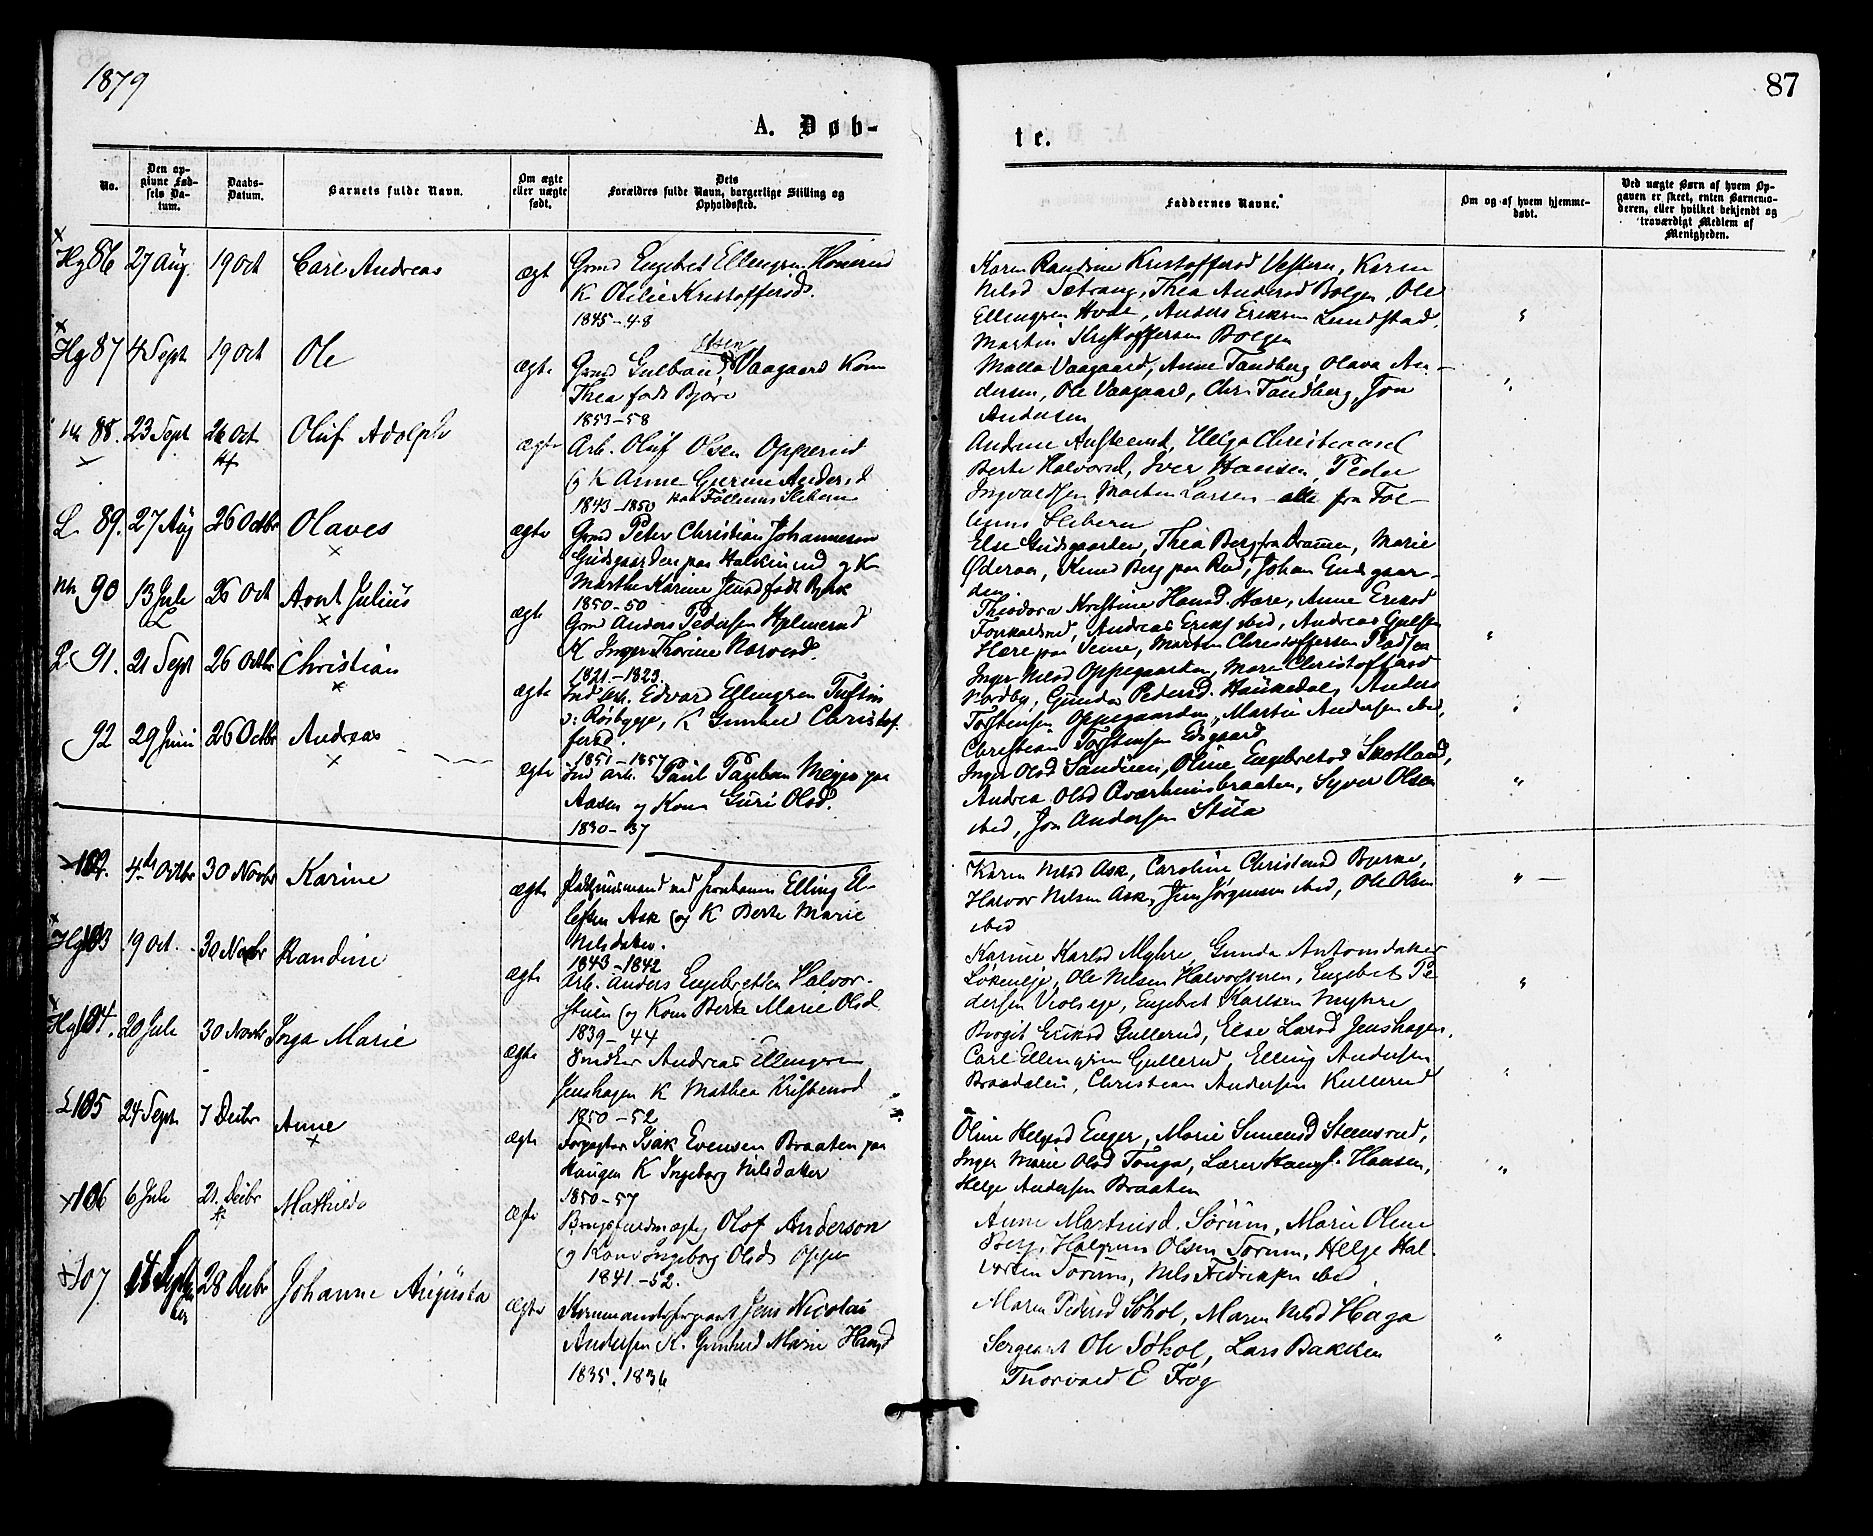 1879
87
A. Døb-
te.
No.
Den op-
givne Fød-
sels Da-
tum.
Daabs-
Datum.
Barnets fulde Navn.
Om ægte
eller uægte
født.
Dets
Forældres fulde Navn, borgerlige Stilling og
Opholdssted.
Faddernes Navne.
Om og af hvem hjemme-
døbt.
Ved uægte Børn af hvem Op-
gaven er skeet, enten Barnemo-
deren, eller hvilket bekjendt og
troværdigt Medlem af
Menigheden.
Hg 86 27 Aug. 19 Oct Carl Andreas ægt
Engebret Ellengsen
K Olilie Kristoffersd.
1845-48
Karen Randine Kristoffersd Vestern, Karen
Nilsd Thea Andersd Bolgen, Ole
Ellengsen Hvål, Anders Eriksen Lundstad,
Martin Kristoffersen Bolgen
Hg 87 4 Sept 19 Oct Ole ægte
Olsen
Gulbrand Vaagaard Kone
Thea født Bjøre
1853-58
Malla Vaagaard, Anne Tandberg, Olava An-
dersen, Ole Vaagaard, Chr. Tandberg, Jon
Andersen
88. 23 Sept 26 Oct Oluf Adolph ægte
Arb. Oluf Olsen Opperud
og K Anne Gurine Andersd
1843-1850 paa Follums Sliberi
Andrine Helga Christiansd
Berte Halvorsd, Iver Hansen, Peder
Ingvaldsen, Morten Larsen - alle fra Fol-
lums Sliberi
L 89. 27 Aug 26 Octbr Olaves ægte
Peter Christian Johannesen
Gudsgaarden paa og K
Marthe Karine Jensd født Bjerk
1850-50
Else Gudsgaarden, Thea Berg fra Drammen, Marie
Øderaa, Knud Berg paa Rud, Johan Gudsgaar-
den.
90 13 Juli 26 Oct Arnt Julius ægte
L
Anders Pedersen Hjelmerud
K Inger Thorine
1821-1823.
Theodora Kristine Hansd. Hære, Anne Eriksd
Andreas Eriks ibid, Andreas Gulsen
Hære paa Semme, Morten Christoffersen
L 91. 21 Sept 26 Octbr Christian ægte
Ind. Arb. Edvard Ellengsen Tuftin
v: Røsbygge, K Gunhild Christof-
fersd.
1851-1857
Inger Nilsd Oppegaarden, Mari Christoffersd
Nordby, Gunda Pedersd. Haukedal, Anders
Torstensen Oppegaarden, Martin Andersen ibid,
Christian Torstensen
92 29 Juni 26 Octbr Andreas ægte
Ind Arb. Paul Meyer paa
Aasen og Kone Guri Olsd.
1830-37
Inger Olsd Sanduren, Oline Engebretsd Skotland,
Andrea Olsd Syver Olsen
ibid, Jon Andersen Stüa
102. 4de Octbr 30 Novbr Karine ægte
Elling El-
lefsen Ask og K Berte Marie
Nilsdatter.
1843-1842
Karen Nilsd Ask, Caroline Christensd Bjerke,
Halvor Nilsen Ask, Jens Jørgensen ibid, Ole Olsen
ibid
Hg 103 19 Oct. 30 Novbr Randine ægte
Arb. Anders Engebretsen Halvor-
stuen og Kone Berte Marie Olsd.
1839-44
Karine Karlsd Myhre, Gunda Antonsdatter
Løkeneie, Ole Nilsen Halvorstuen, Engebret Pe-
dersen Engebret Karlsen Myhre
Hg 104. 20 Juli 30 Novbr Inga Marie ægte
Snedker Andreas Ellengsen
Jenshagen K Mathea Kristensd
1850-52
Birgit Eriksd Gullerud, Else Larsd Jenshagen,
Carl Ellengsen Gullerud Elling Andersen
Braadalen, Christian Andersen Kullerud
L 105 24 Sept. 7 Decbr Anne ægte
Forpagter Isak Evensen Braaten paa
Haugen K Ingeborg Nilsdatter
1850-57
Oline Helgesd Enger, Marie Simensd Steensrud,
Inger Marie Olsd Tonga, Lærer Hansen,
Helge Andersen Braaten
106 6 Juli 21. Decbr Mathilde ægte
Brugsfuldmægtig Olof Anderson
og Kone Ingeborg Olsd
1841.-52.
Anne Martinsd. Sørum, Marie Olsen
Berg, Halgrim Olsen Torum, Helge Hal-
vorsen Torum, Nils Fredriksen ibid.
107 28 Decbr Johanne Augusta ægte
Kommandersergeant Jens Nicolai
Andersen K. Gunhild Marie Hansd
1835. 1836
Maren Pedersd Søhol, Maren Nilsd Haga
Sergeant Ole Søhol, Lars Bakken
Thorvald E Frog